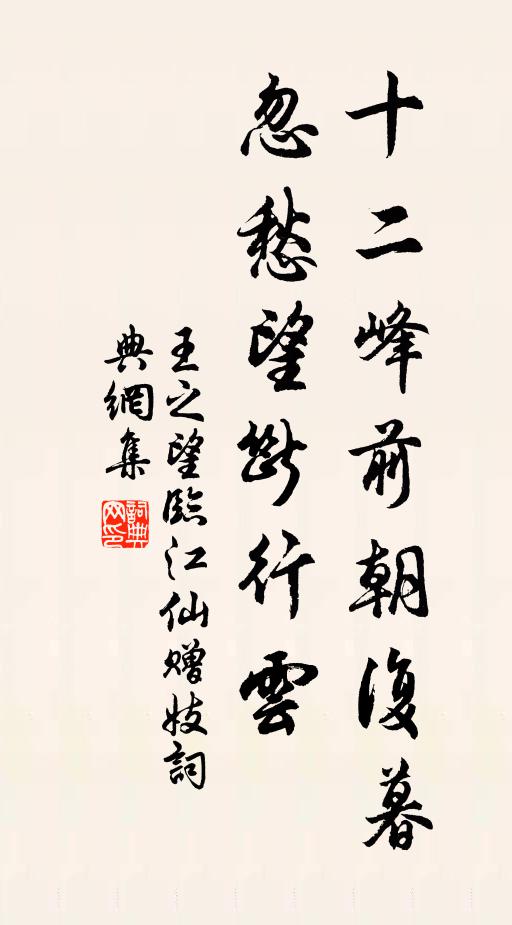 十二峰前朝復暮
忽愁望斷行雲
王之望臨江仙贈妓詞
典網集
詞典网印